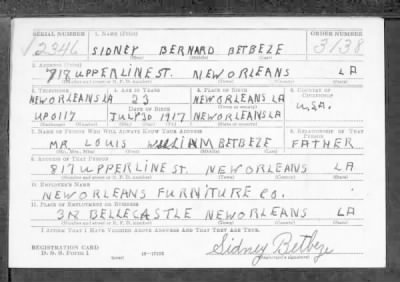 SERIAL NUMBER 1. NAME (Print) ORDER NUMBER
2346 SIDNEY BERNARD BETBEZE 3138
(First) (Middle) (Last)
2. ADDRESS (Print)
817 UPPERLINE ST. NEW ORLEANS LA
(Number and street or R. F. D. number) (Town) (County) (State)
3. TELEPHONE 4. AGE IN YEARS 5. PLACE OF BIRTH 6. COUNTRY OF CITIZENSHIP
NEW ORLEANS LA 23 NEW ORLEANS LA U.S.A.
DATE OF BIRTH
UP 0117 JULY 30 1917 NEW ORLEANS LA
(Exchange) (Number) (Mo.) (Day) (Yr.) (State or country)
7. NAME OF PERSON WHO WILL ALWAYS KNOW YOUR ADDRESS 8. RELATIONSHIP OF THAT PERSON
MR LOUIS WILLIAM BETBEZE FATHER
(Mr., Mrs., Miss) (First) (Middle) (Last)
9. ADDRESS OF THAT PERSON
817 UPPERLINE ST. NEW ORLEANS LA
(Number and street or R. F. D. number) (Town) (County) (State)
10. EMPLOYER'S NAME
NEW ORLEANS FURNITURE CO.
11. PLACE OF EMPLOYMENT OR BUSINESS
BELLECASTLE NEW ORLEANS LA
(Number and street or R. F. D. number) (Town) (County) (State)
I AFFIRM THAT I HAVE VERIFIED ABOVE ANSWERS AND THAT THEY ARE TRUE.
REGISTRATION CARD
D. S. S. Form 1
Sidney Betbeze
(Registrant's signature)